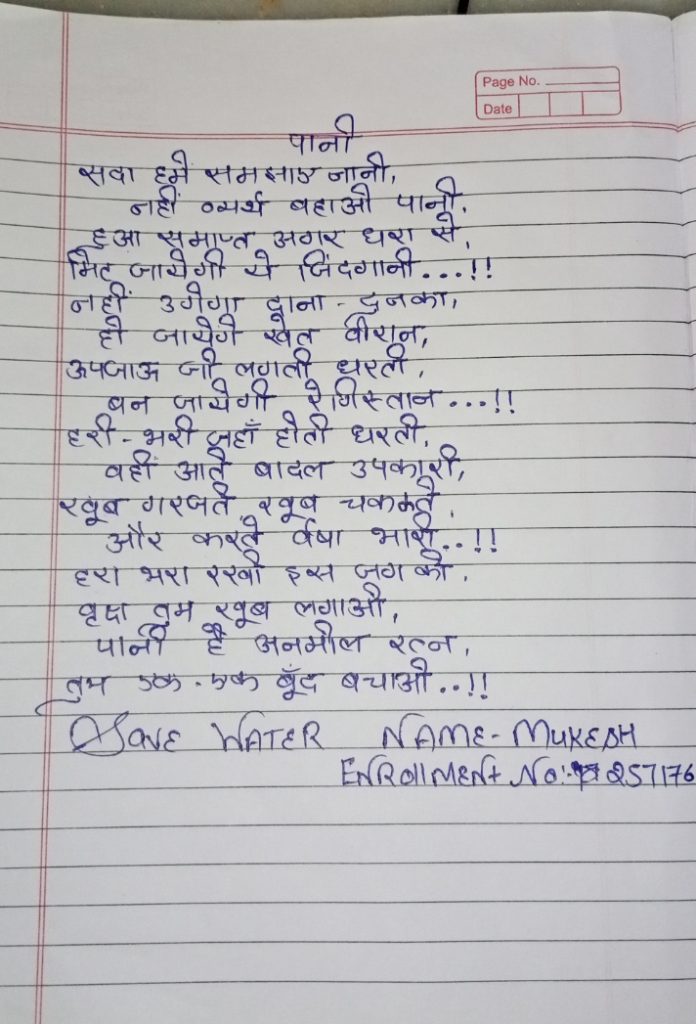 Page No.
Date
पानी
सदा हमें समझाए नानी,
नहीं व्यर्थ बहाओ पानी,
हुआ समाप्त अगर धरा से,
मिट जायेगी ये जिंदगानी...!!
नहीं उगेगा दाना-दुनका,
हो जायेंगे खेत वीरान,
उपजाऊ जो लगती धरती,
बन जायेगी रेगिस्तान...!!
हरी-भरी जहाँ होती धरती,
वहीं आते बादल उपकारी,
खूब गरजते खूब चमकते,
और करते र्वषा भारी..!!
हरा भरा रखो इस जग को,
वृक्ष तुम खूब लगाओ,
पानी है अनमोल रत्न,
तुम एक-एक बूँद बचाओ..!!
SAVE WATER NAME-MUKESH
ENROllMENt No:- 257176